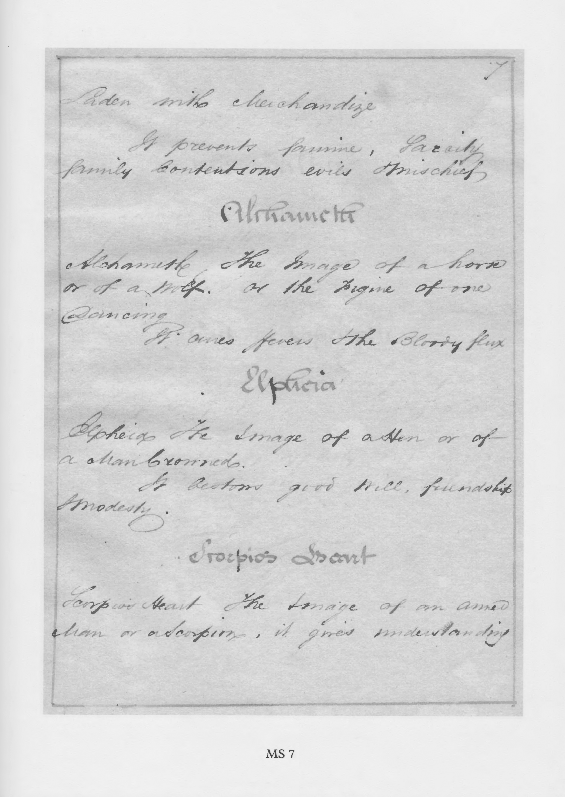 7
Laden with Merchandize
It prevents famine,
family Contentions evils & mischief
Alchameth
Alchameth The Image of a horse
or of a Wolf. or the Figure of one
Dancing
It cures Fevers & the Bloody flux
Elpheia
Elpheia The Image of a Hen or of
a Man Crowned.
It bestows good Will, friendship
& modesty.
Scorpios Heart
Scorpios Heart The Image of an armed
Man or a Scorpion, it gives understanding
MS 7